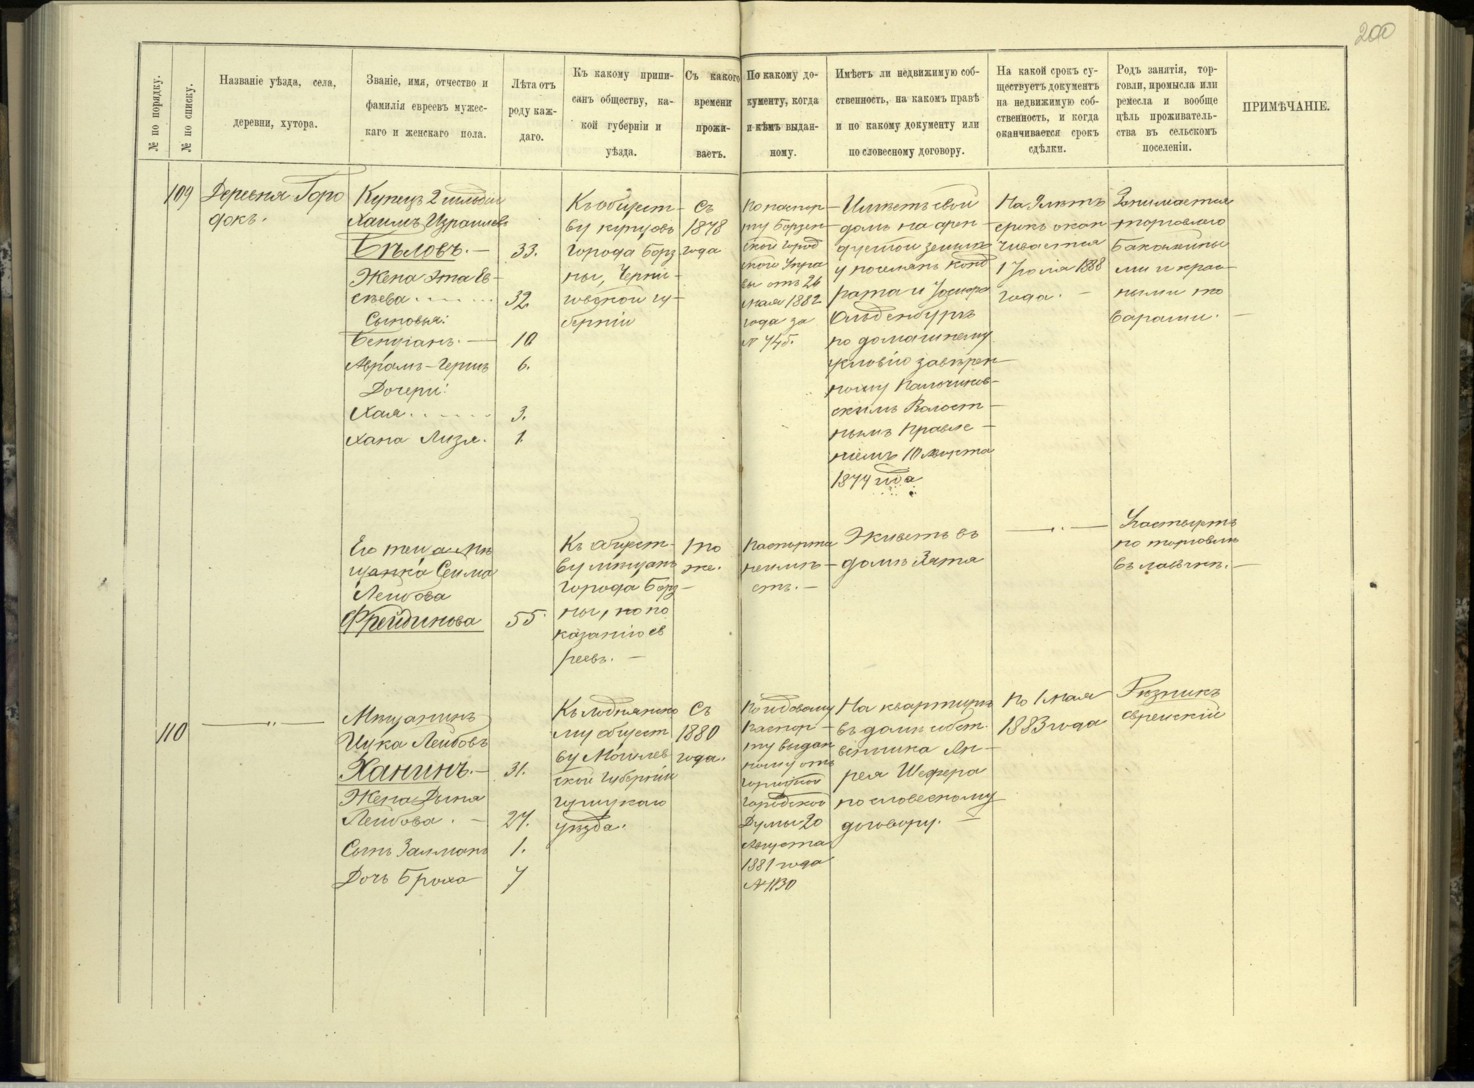 200
№ по порядку.
№ по списку.
Названіе уѣзда, села,
деревни, хутора.
Званіе, имя, отчество и
фамилія евреевъ мужес-
каго и женскаго пола.
Лѣта отъ
роду каж-
даго.
Къ какому припи-
санъ обществу, ка-
кой губерніи и
уѣзда.
Съ какого
времени
прожи-
ваетъ.
По какому до-
кументу, когда
и кѣмъ выдан-
ному.
Имѣетъ ли недвижимую соб-
ственность, на какомъ правѣ
и по какому документу или
по словесному договору.
На какой срокъ су-
ществуетъ документъ
на недвижимую соб-
ственность, и когда
оканчивается срокъ
сдѣлки.
Родъ занятія, тор-
говли, промысла или
ремесла и вообще
цѣль проживатель-
ства въ сельскомъ
поселеніи.
ПРИМѢЧАНІЕ.
109
Деревня Горо
докъ.
Купецъ 2 гильдіи
Хаимъ Израилевъ
Бѣловъ. — 33.
Жена Эта Ев-
сѣева 32.
Сыновья:
Бенціанъ. — 10
Абрамъ-Герцъ 6.
Дочери:
Хая 3.
Хана Лизя. 1.
Къ общест-
ву купцовъ
города Борз
ны, Черни-
говской гу-
берніи
Съ
1878
года
По паспор-
ту Борзен
ской Город
ской Упра
вы отъ 26
мая 1882
года за
№ 745.
Имѣетъ свой
домъ на арен
дуемой землѣ
у поселянъ Конд
рата и
Ольденбургъ
по домашнему
условію завѣрен
ному
скимъ Волост-
нымъ Правле-
ніемъ 10 Августа
1874 года
На лѣтъ
срокъ окан
чивается
1 Юлія 1888
года. —
Занимается
торговлею
бакалейны
ми и крас-
ными то
варами. —
Его теща Мѣ
щанка Сима
Лейбова
Фрейдинова 55.
Къ общест-
ву мѣщанъ
города Борз-
ны, по по
казанію ев
реевъ. —
То
же.
Паспорта
неимѣ-
етъ. —
Живетъ въ
домѣ Зятя
— „ —
по торговлѣ
въ лавкѣ. —
110
— „ —
Мѣщанинъ
Ицка Лейбовъ
Ханинъ. — 31.
Жена Дыня
Лейбова. — 27.
Сынъ Залманъ 1.
Дочь Броха 7
Къ
му общест
ву Могилев
ской Губерніи
уѣзда.
Съ
1880
года.
По годовому
паспор-
ту выдан
ному отъ
Городской
Думы 20
Августа
1881 года
№ 1130
На квартирѣ
въ домѣ собст.
венника Ан-
рея Шефера
по словесному
договору. —
по 1 мая
1883 года
Рѣзникъ
еврейскій